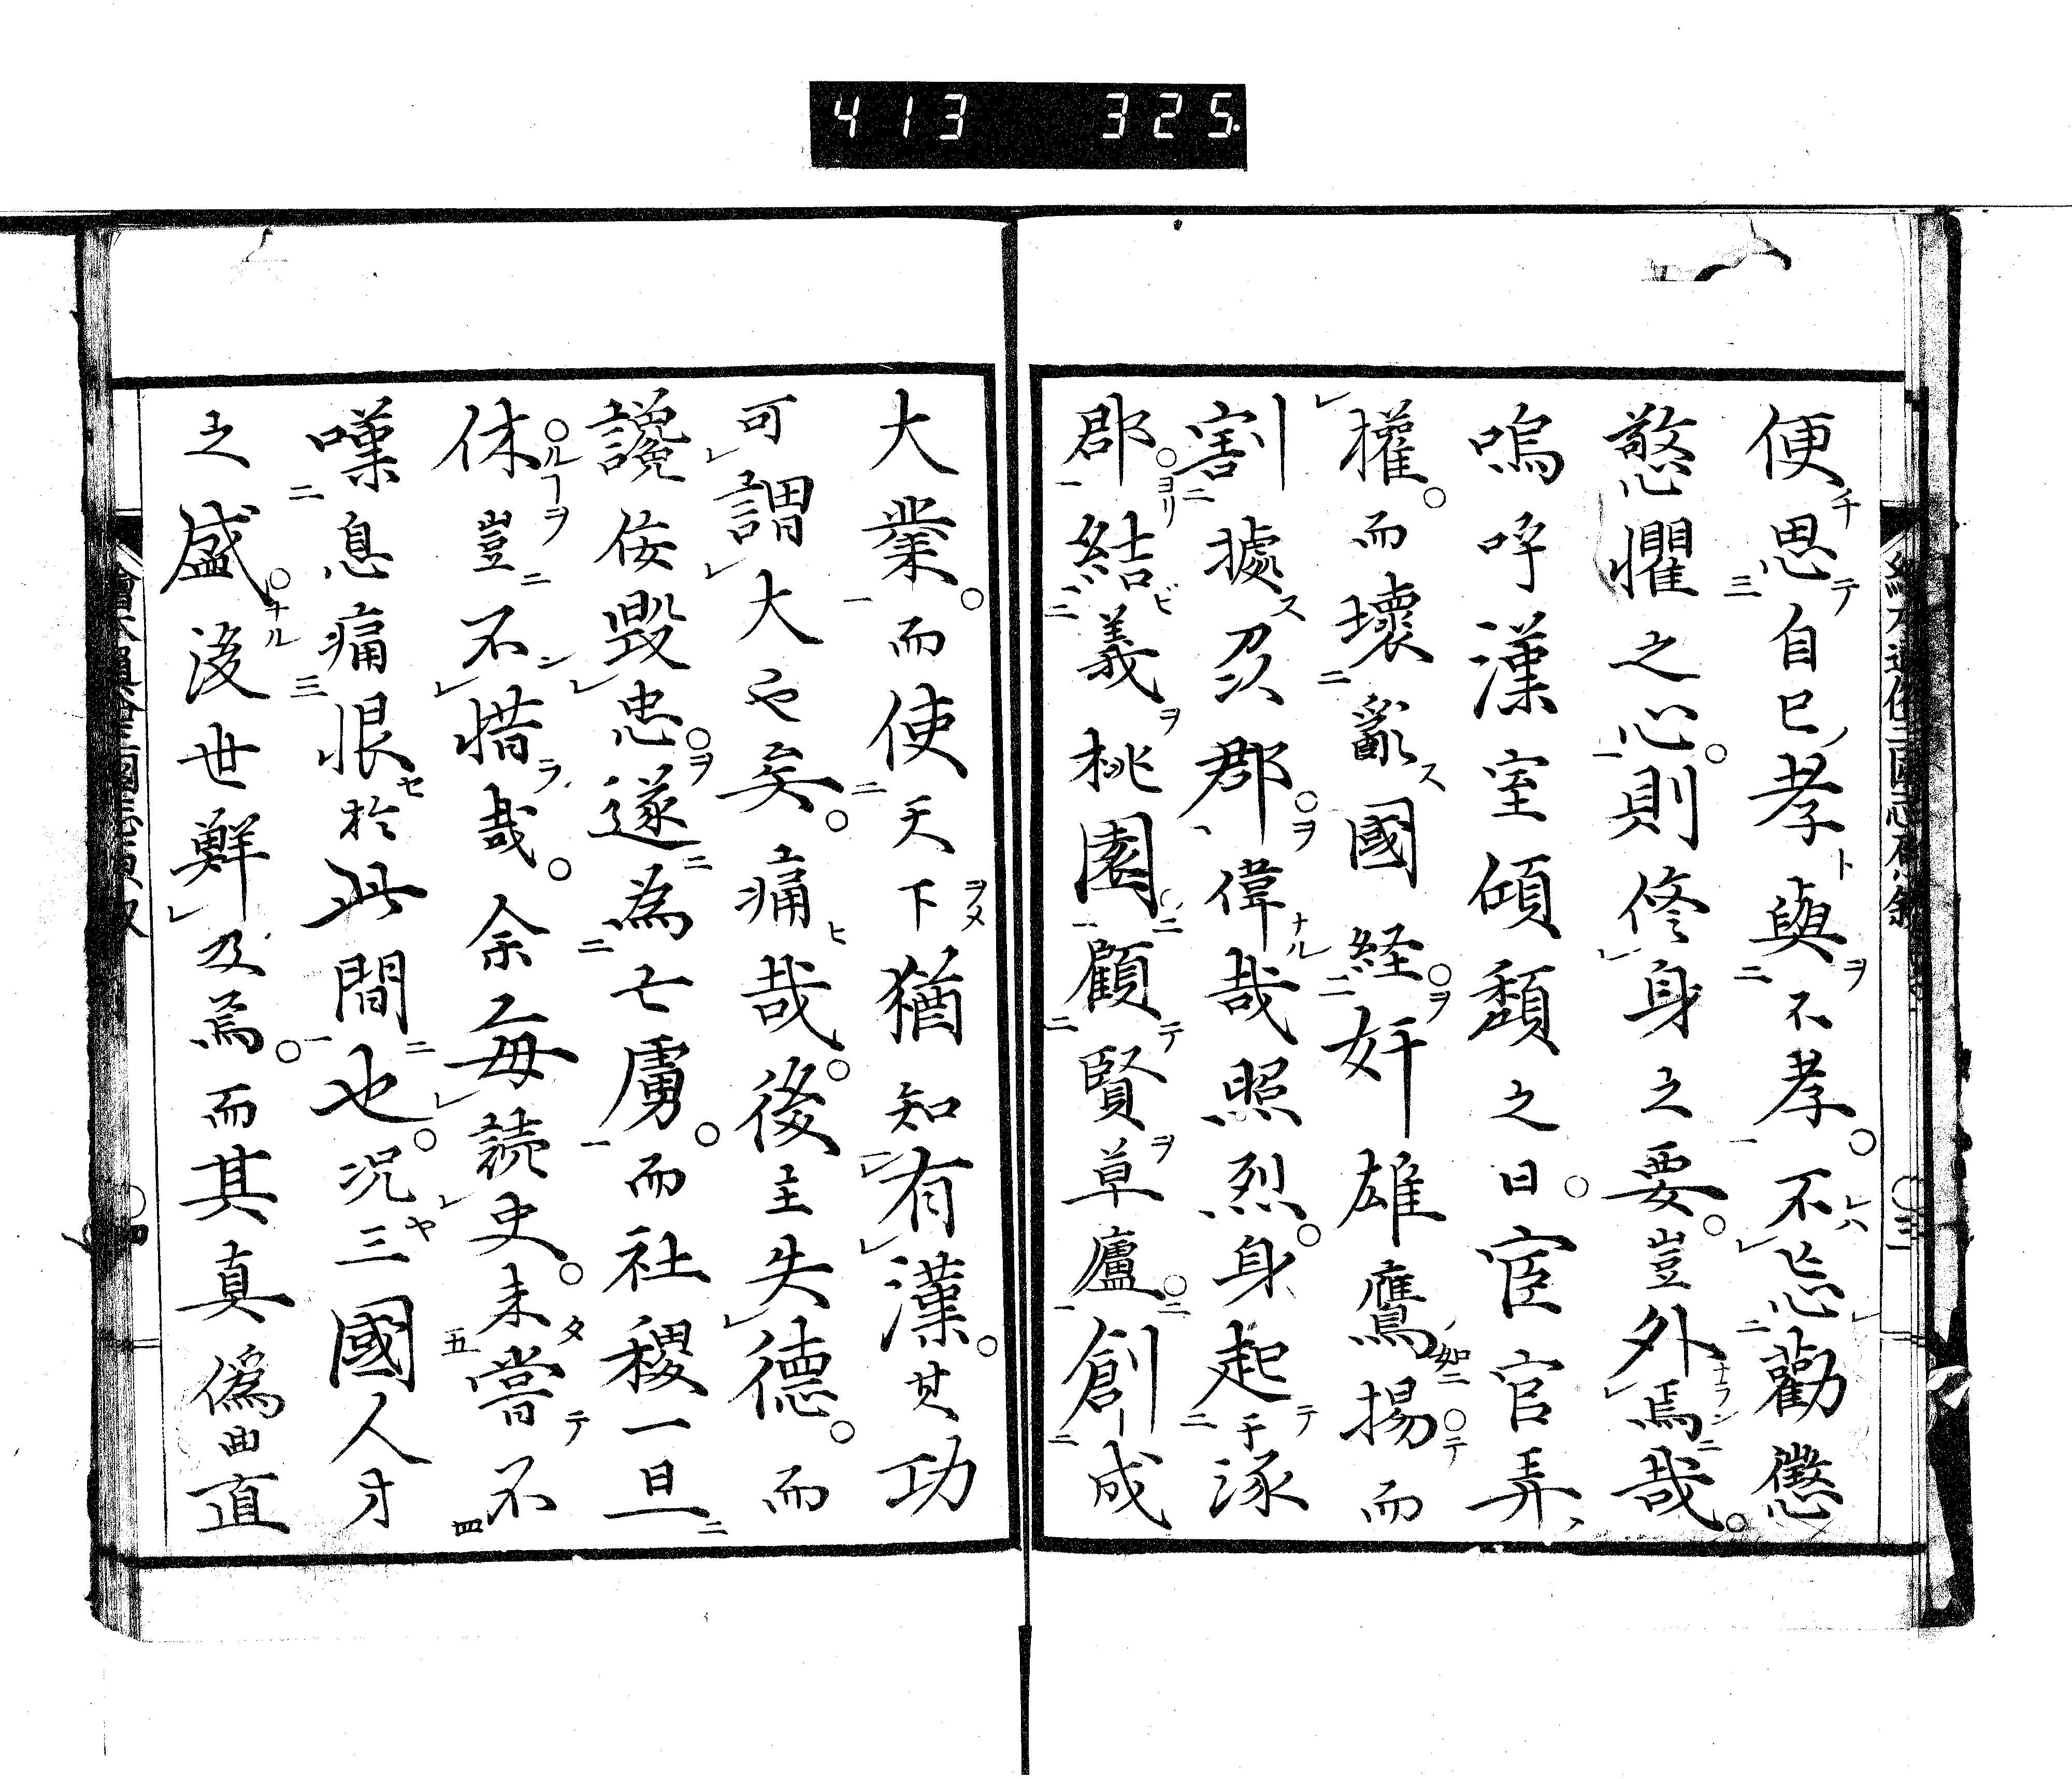 413 325
便思自己孝與不孝不忘勸懲
愗懼之心則修身之要豈外焉哉
嗚呼漢室傾頹之日宦官弄
權而壞亂國経奸雄鷹揚而
割據忍郡偉哉照烈身起涿
郡結義桃園顧賢草廬創成
大業而使天下猶知有漢其功
可謂大也矣痛哉後主失德而
讒佞毀忠遂為亡虜而社稷一旦
休豈不惜哉余每読史未嘗不
嘆息痛恨於此間也况三國人才
之盛後世鮮及焉而其真偽曲直